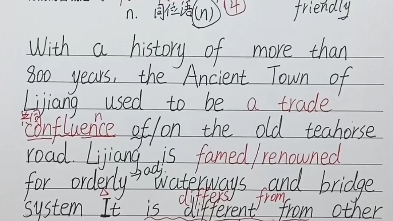 n. 同位语(n) ④ friendly
With a history of more than
800 years, the Ancient Town of
Lijiang used to be a trade
n
confluence of/on the old teahorse
road. Lijiang is famed/renowned
adj
for orderly waterways and bridge
differs from
system It is different from other